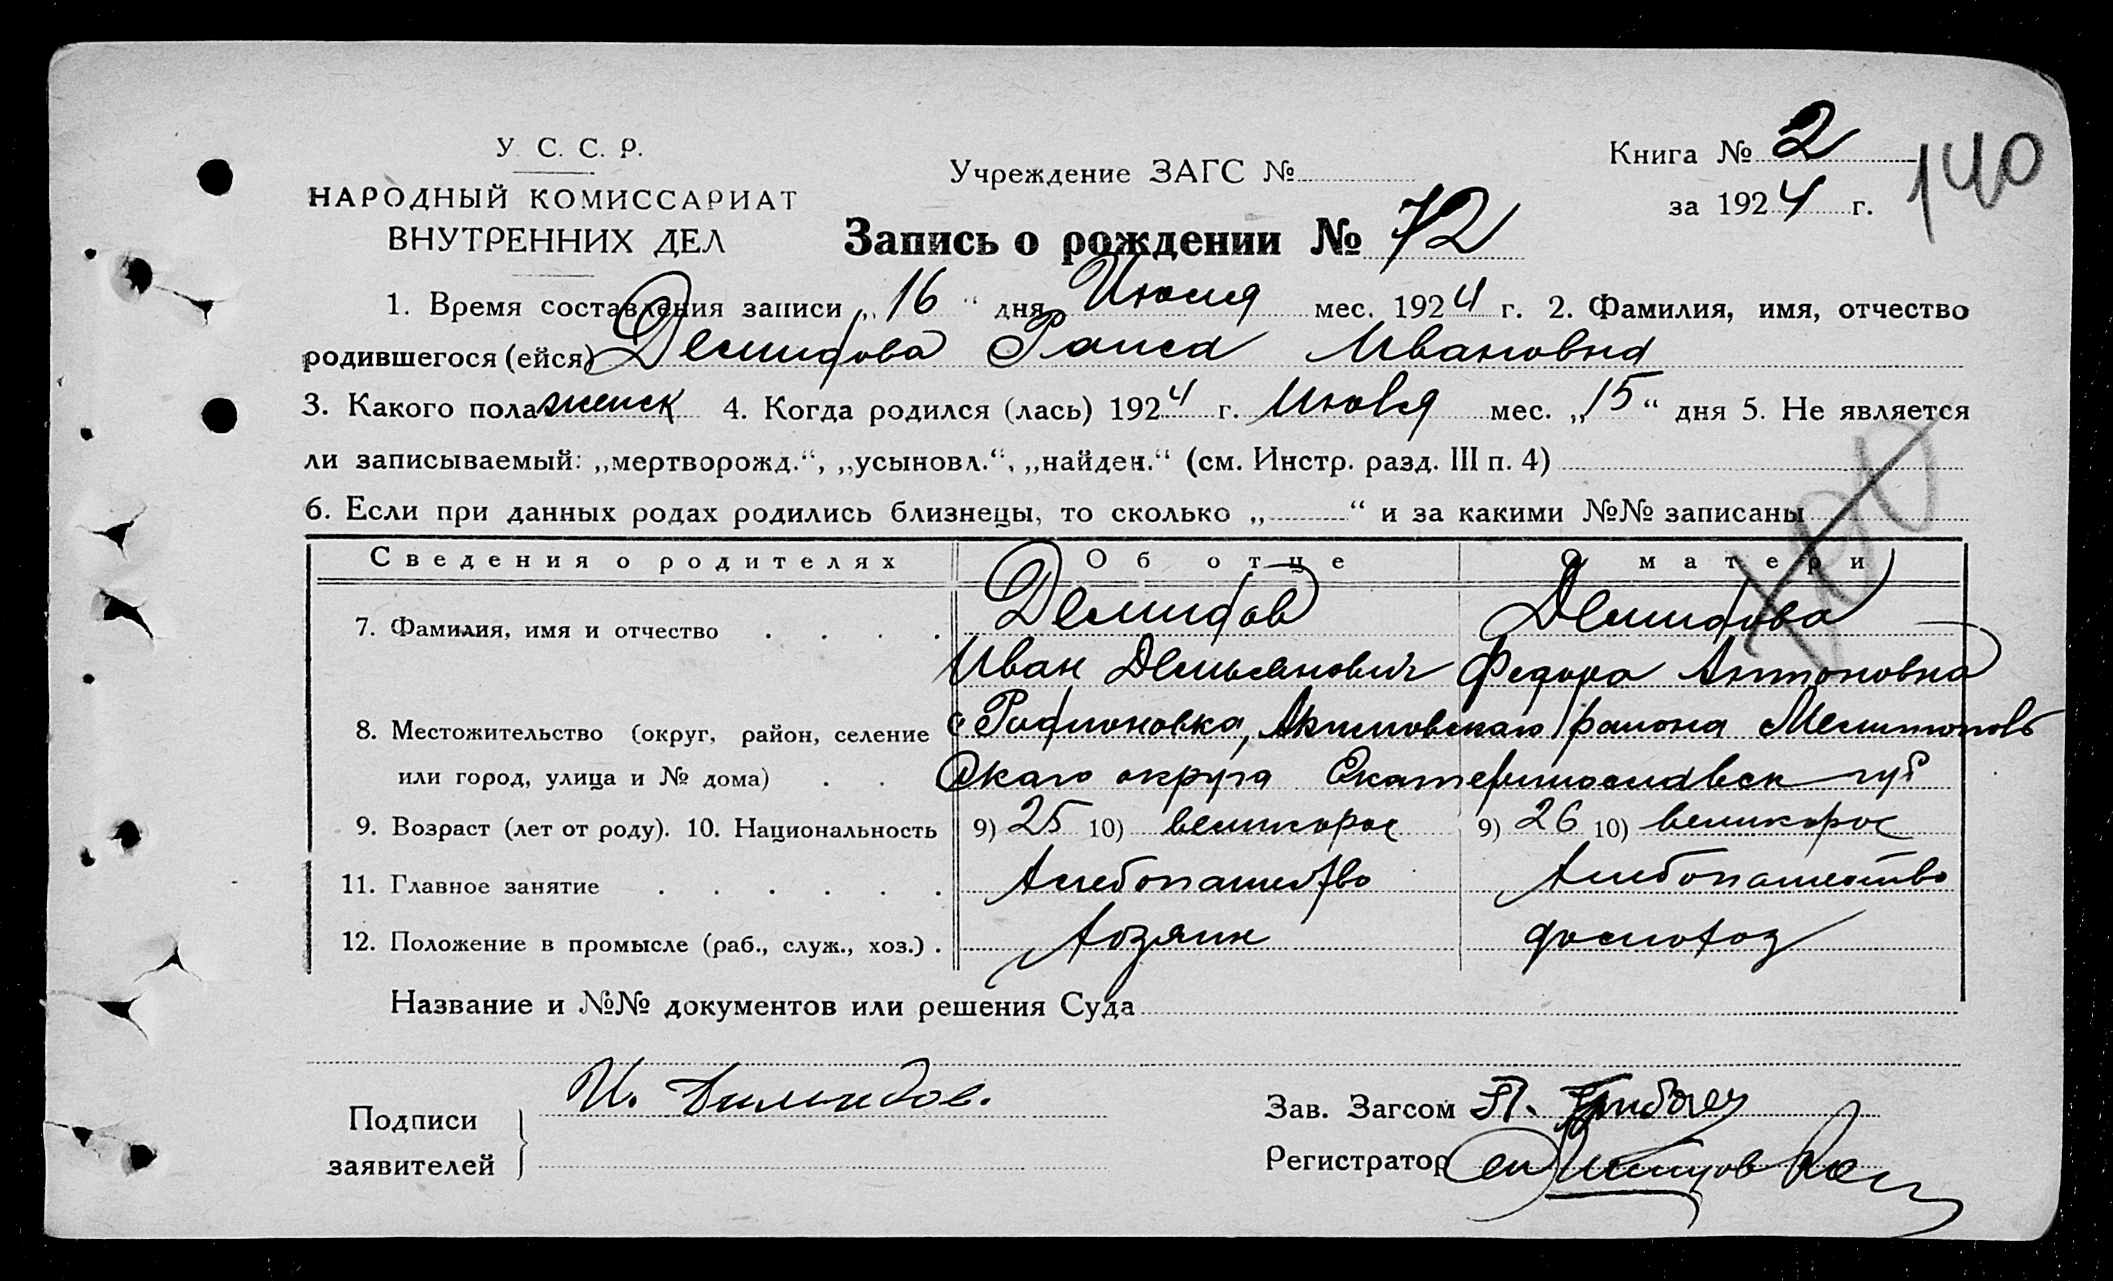 У. С. С. Р.
НАРОДНЫЙ КОМИССАРИАТ
ВНУТРЕННИХ ДЕЛ
Учреждение ЗАГС №
Книга № 2
за 1924 г.
140
Запись о рождении № 72
1. Время составления записи „16“ дня Июля мес. 1924 г. 2. Фамилия, имя, отчество
родившегося (ейся) Демидова Раиса Ивановна
3. Какого пола женск 4. Когда родился (лась) 1924 г. мес. „15“ дня 5. Не является
ли записываемый: „мертворожд.“, „усыновл.“, „найден.“ (см. Инстр. разд. III п. 4)
6. Если при данных родах родились близнецы, то сколько „ “ и за какими №№ записаны
Сведения о родителях Об отце О матери
7. Фамилия, имя и отчество . . . . Демидов Демидова
Иван Демьянович Федора Антоновна
8. Местожительство (округ, район, селение с Родионовка, Акимовскаго района Мелитополь
или город, улица и № дома) . . скаго округа Екатеринославск губ
9. Возраст (лет от роду). 10. Национальность 9) 25 10) великорос 9) 26 10) великорос
11. Главное занятие . . . . . . Хлебопашество Хлебопашество
12. Положение в промысле (раб., служ., хоз.) . хозяин домохоз
Название и №№ документов или решения Суда
Подписи
заявителей
И. Демидов.
Зав. Загсом П.
Регистратор